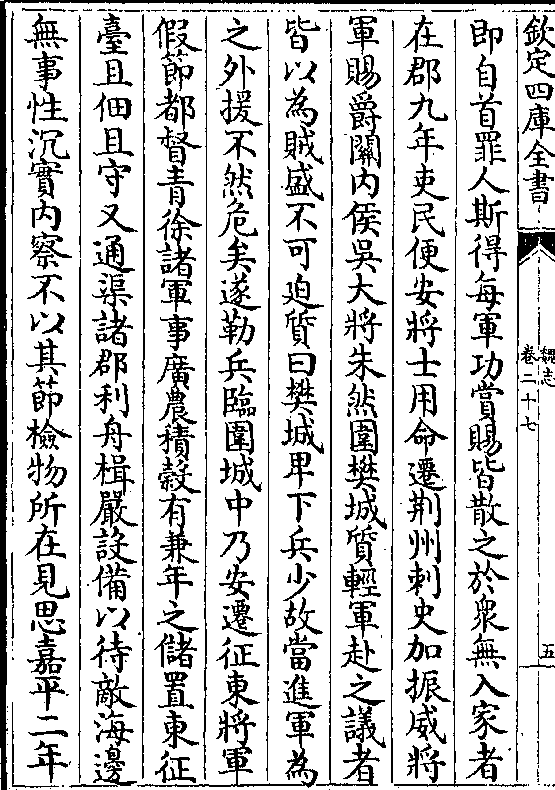 欽定四庫全書
魏志
卷二十七
五
即自首罪人斯得每軍功賞賜皆散之於衆無入家者
在郡九年吏民便安將士用命遷荆州刺史加振威將
軍賜爵關内侯吳大將朱然圍樊城質輕軍赴之議者
皆以為賊盛不可迫質曰樊城卑下兵少故當進軍為
之外援不然危矣遂勒兵臨圍城中乃安遷征東將軍
假節都督青徐諸軍事廣農積糓有兼年之儲置東征
臺且佃且守又通渠諸郡利舟楫嚴設備以待敵海邊
無事性沉實内察不以其節檢物所在見思嘉平二年